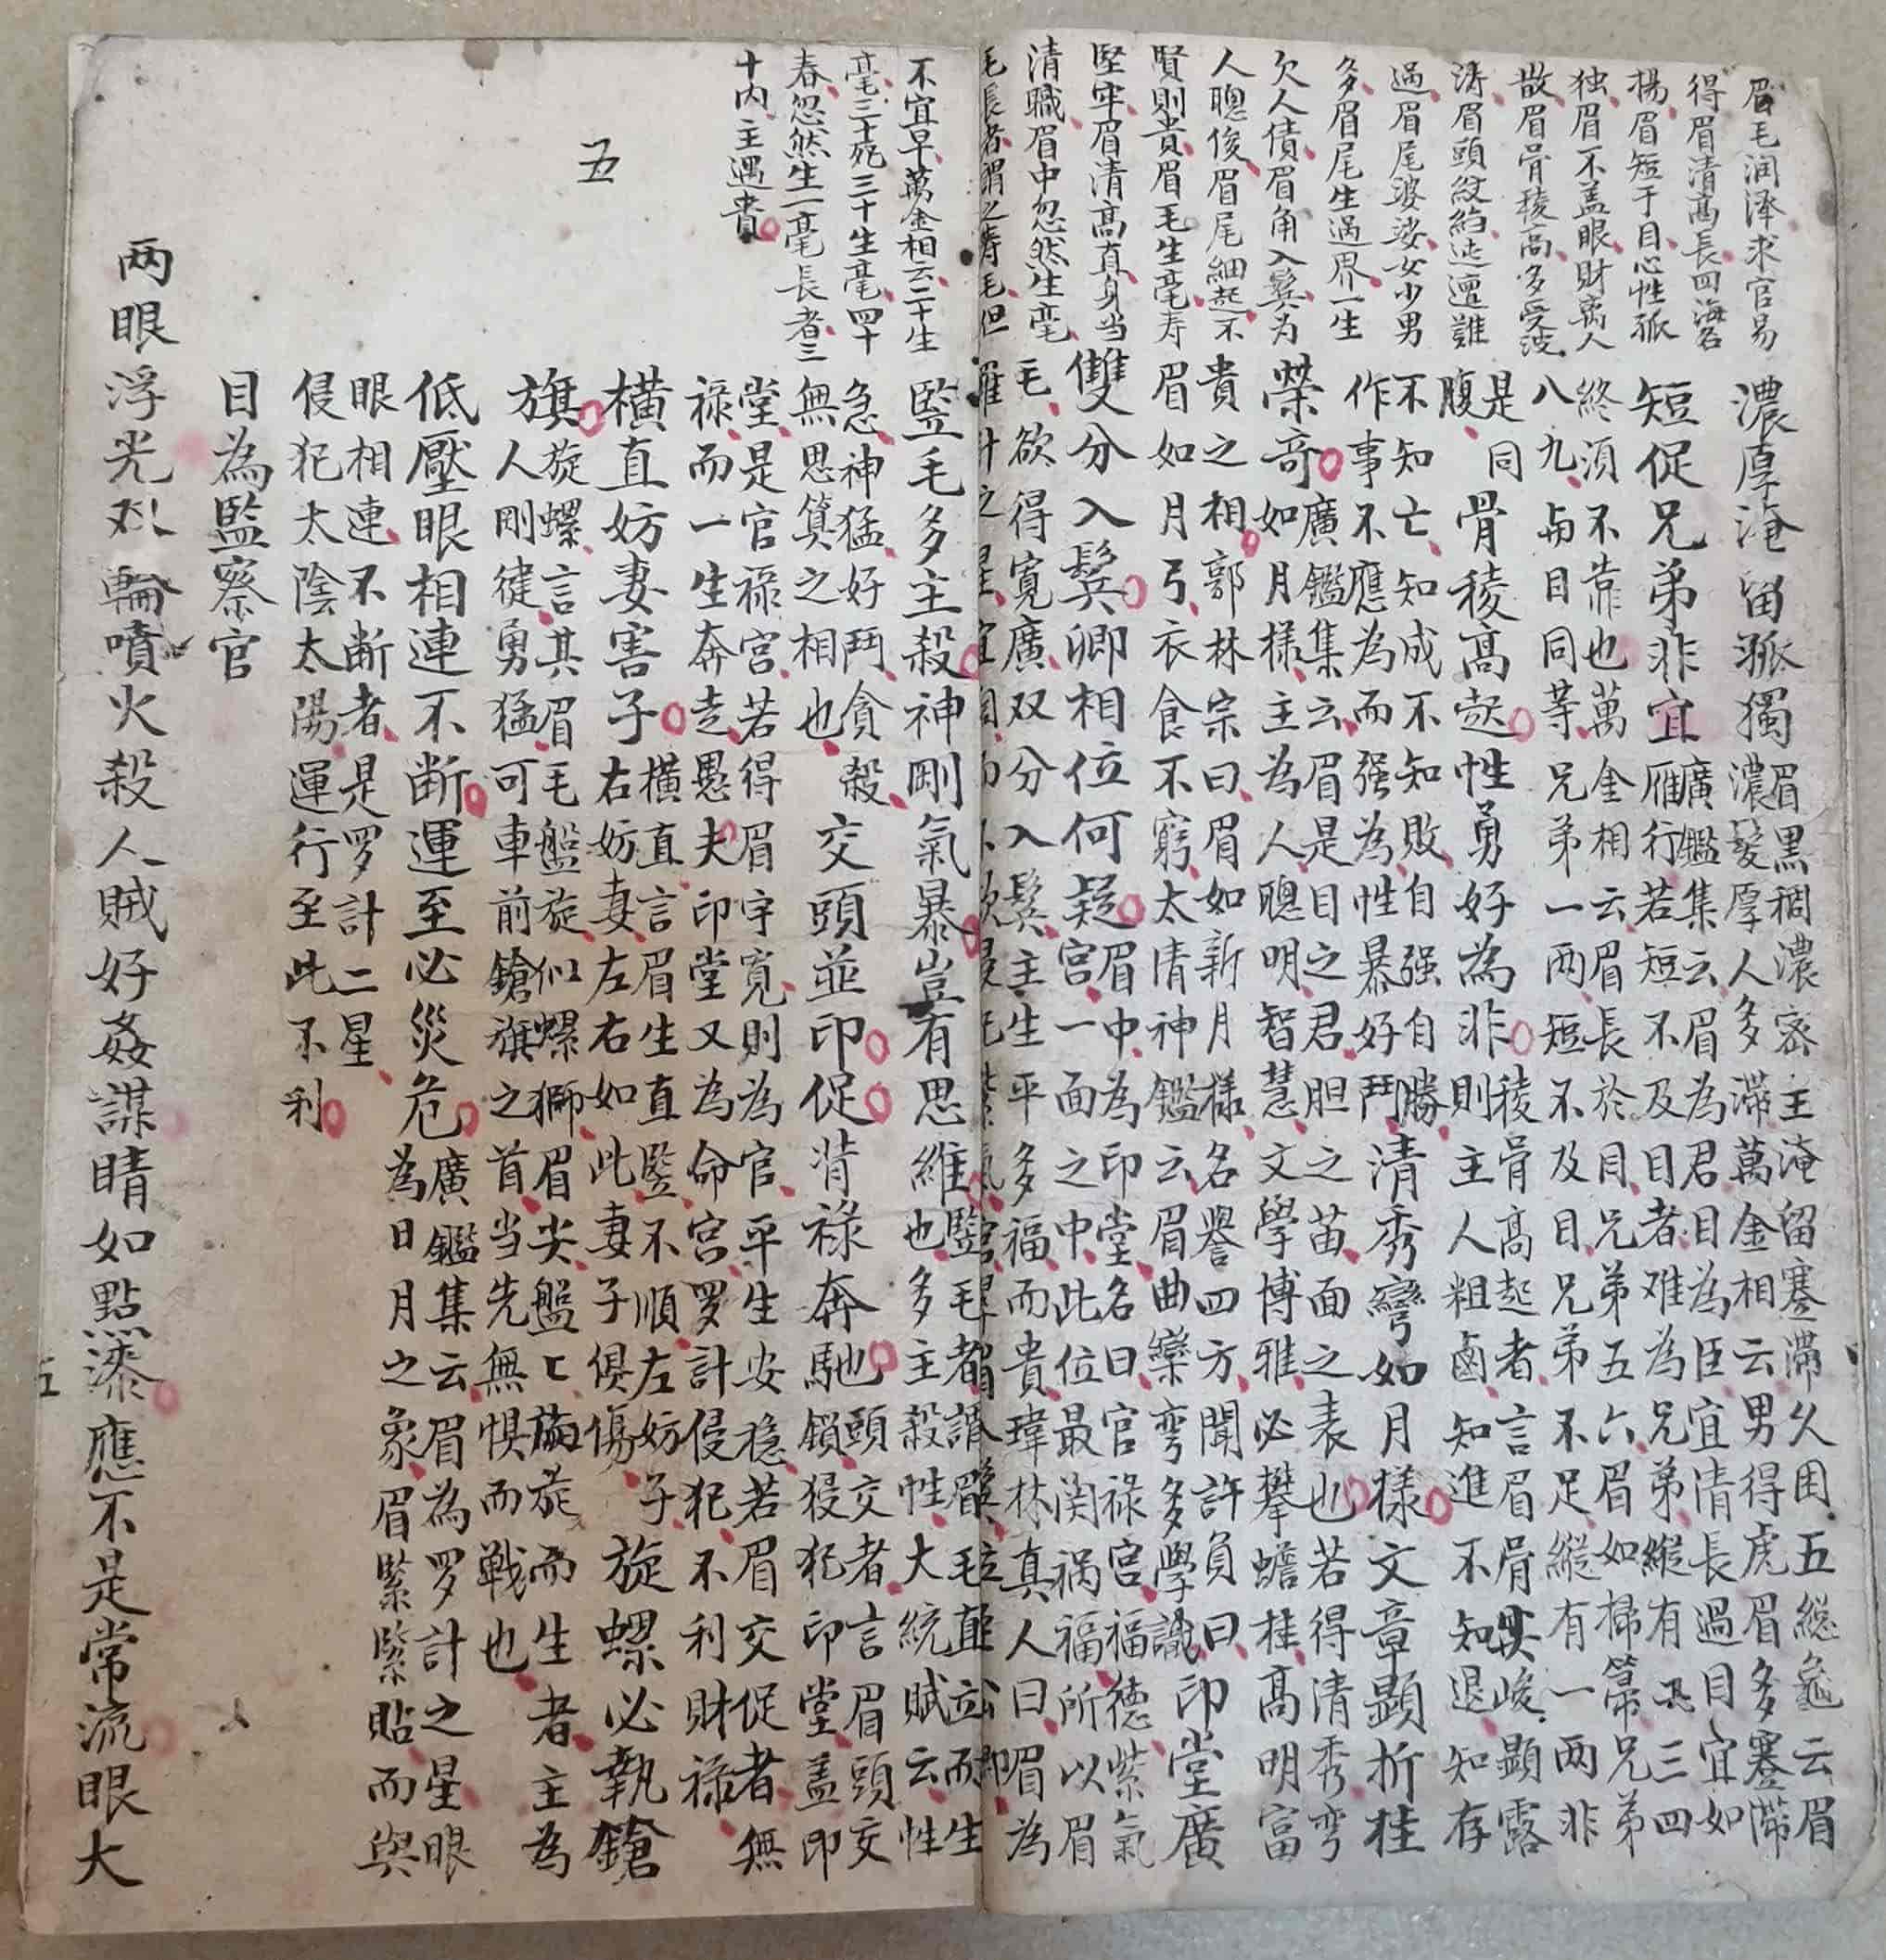 眉毛润泽求官易
得眉清高長四海名
楊眉短于目心性孤
独眉不盖眼財离人
散眉骨稜高多受波
涛眉頭紋絈迍邅難
過眉尾婆娑女少男
多眉尾生過界一生
欠人債眉角入鬂为
人聰俊眉尾細起不
賢則貴眉毛生毫寿
堅牢眉清高直身当
清職眉中忽然生毫
毛長者謂之寿毛但
濃厚淹留孤獨
眉黑稠濃密主淹留蹇滯久困五総龜云眉
濃髮厚人多滯萬金相云男得虎眉多蹇滯
短促兄弟非宜
廣鑑集云眉為君目為臣宜清長過目宜如
雁行若短不及目者难為兄弟縱有三四
終須不靠也萬金相云眉長於目兄弟五六眉如掃箒兄弟
八九与目同等兄弟一兩短不及目兄弟不足縱有一兩非
是同
腹
骨稜高起性勇好為非
稜骨高起者言眉骨峻顯露
則主人粗鹵知進不知退知存
不知亡知成不知敗自强自勝
作事不應為而强為性暴好鬥
清秀彎如月樣文章顯折桂
榮奇
廣鑑集云眉是目之君胆之苗面之表也若得清秀弯
如月樣主為人聰明智慧文學博雅必攀蟾桂高明富
貴之相郭林宗曰眉如新月樣名譽四方聞許負曰
眉如月弓衣食不窮太清神鑑云眉曲欒弯多學識
印堂廣
雙分入鬂卿相位何疑
眉中為印堂名曰官祿宮福德紫氣
宮一面之中此位最関禍福所以眉
毛欲得寬廣双分入鬂主生平多福而貴瑋林真人曰眉為
不宜早萬金相云二十生
毫三十死三十生毫四十
春忽然生一毫長者三
十内主遇貴
五
監毛多主殺神剛氣暴豈有思維
豎毛者謂眉毛直立而生
也多主殺性大統賦云性
急神猛好鬥貪殺
無思算之相也
交頭並印促背祿奔馳
頭交者言眉頭交
鎖侵犯印堂盖印
堂是官祿宮若得眉宇寬則為官平生安穏若眉交促者無
祿而一生奔走愚夫印堂又為命宮罗計侵犯不利財祿
橫直妨妻害子
橫直言眉生直豎不順左妨子
右妨妻左右如此妻子俱傷
旋螺必執鎗
旗
旋螺言其眉毛盤旋似螺獅眉尖盤旋而生者主為
人剛徤勇猛可車前鎗旗之首当先無惧而戦也
低壓眼相連不断運至必災危
廣鑑集云眉為罗計之星眼
為日月之象眉緊緊貼而與
眼相連不断者是罗計二星
侵犯太陰太陽運行至此不利
目為監察官
两眼浮光双輪噴火殺人賊好姦謀睛如點漆應不是常流眼大
五